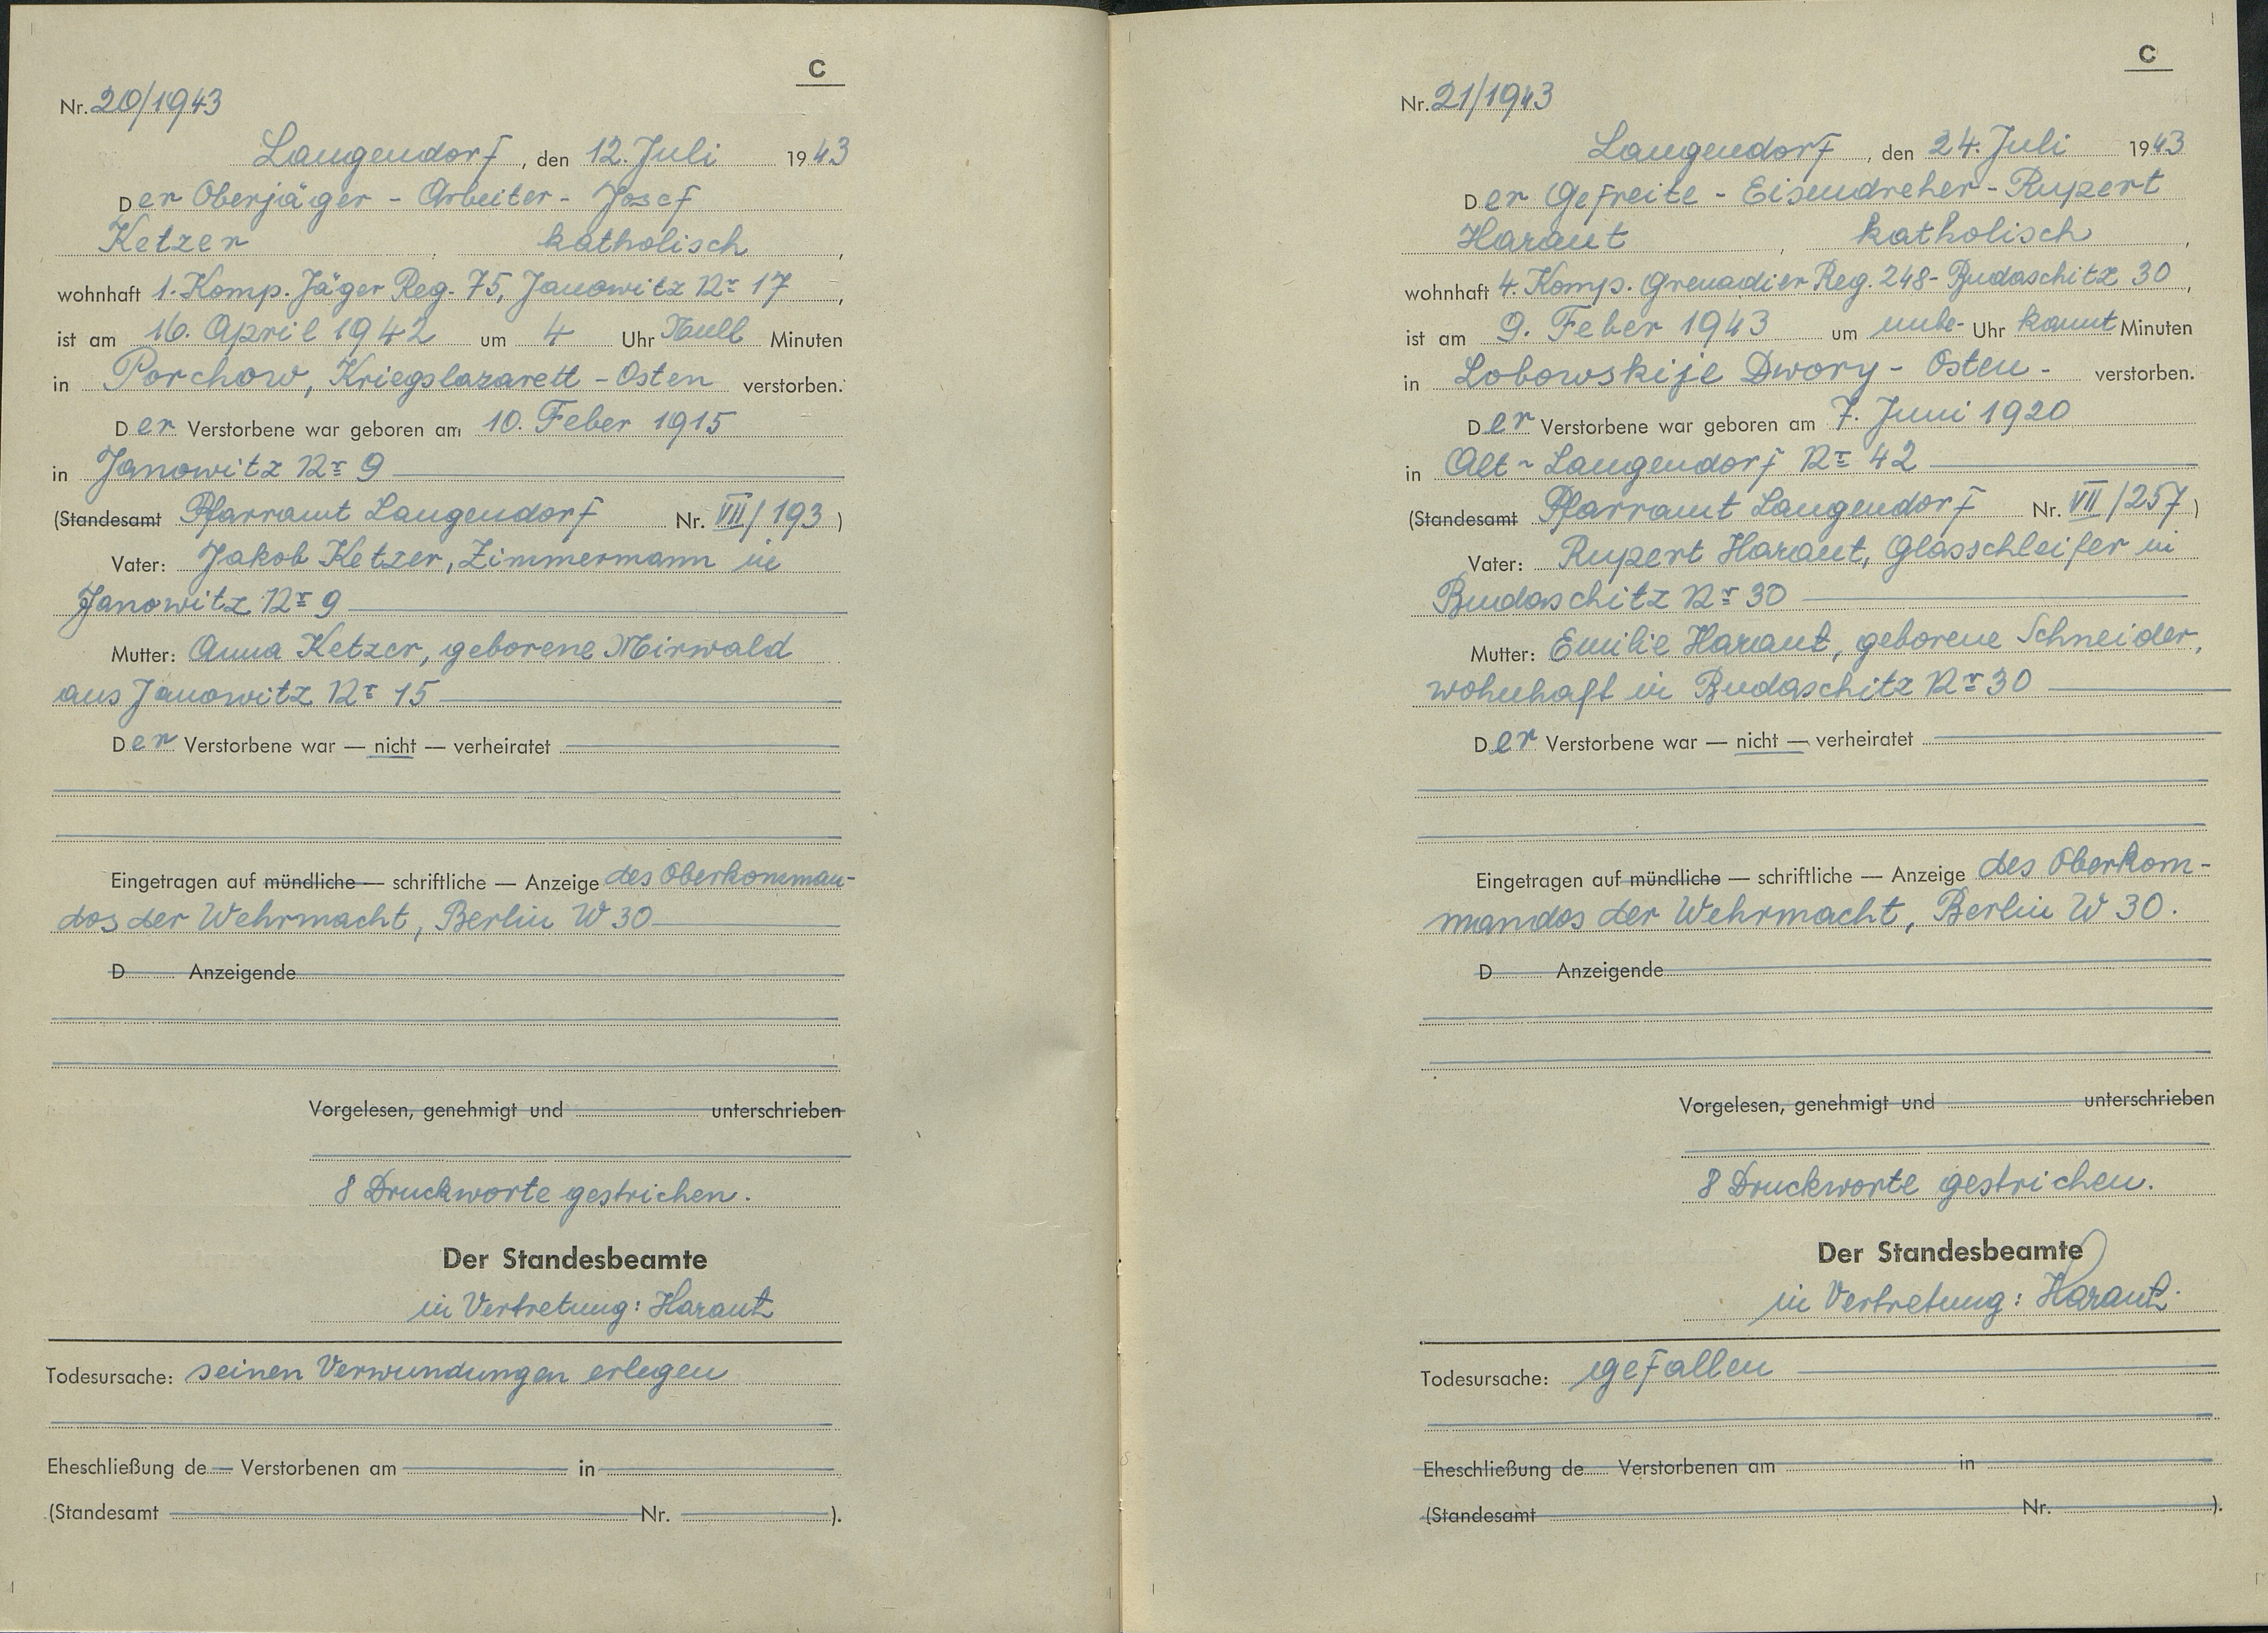 C
Nr. 20/1943
Langendorf, den 12. Juli 1943
Der Oberjäger - Arbeiter - Josef
Ketzer, katholisch,
wohnhaft 1. Komp. Jäger Reg. 75, Janowitz Nr 17,
ist am 16. April 1942 um 4 Uhr Null Minuten
in Porchow, Kriegslazarett - Osten verstorben.
Der Verstorbene war geboren am 10. Feber 1915
in Janowitz Nr 9
(Standesamt Pfarramt Langendorf Nr. VII/193)
Vater: Jakob Ketzer, Zimmermann in
Janowitz Nr 9
Mutter: Anna Ketzer, geborene Mirwald
aus Janowitz Nr 15
Der Verstorbene war — nicht — verheiratet
Eingetragen auf mündliche — schriftliche — Anzeige des Oberkomman-
dos der Wehrmacht, Berlin W 30
D Anzeigende
Vorgelesen, genehmigt und unterschrieben
8 Druckworte gestrichen.
Der Standesbeamte
in Vertretung: Haraut
Todesursache: seinen Verwundungen erlegen
Eheschließung de Verstorbenen am in
(Standesamt Nr. ).
C
Nr. 21/1943
Langendorf, den 24. Juli 1943
Der Gefreite - Eisendreher - Rupert
Haraut, katholisch,
wohnhaft 4. Komp. Grenadier Reg. 248 - Budaschitz 30,
ist am 9. Feber 1943 um unbe- Uhr kannt Minuten
in Lobowskije Dwory - Osten - verstorben.
Der Verstorbene war geboren am 7. Juni 1920
in Alt-Langendorf Nr 42
(Standesamt Pfarramt Langendorf Nr. VII/257)
Vater: Rupert Haraut, Glasschleifer in
Budaschitz Nr 30
Mutter: Emilie Haraut, geborene Schneider,
wohnhaft in Budaschitz Nr 30
Der Verstorbene war — nicht — verheiratet
Eingetragen auf mündliche — schriftliche — Anzeige des Oberkom-
mandos der Wehrmacht, Berlin W 30.
D Anzeigende
Vorgelesen, genehmigt und unterschrieben
8 Druckworte gestrichen.
Der Standesbeamte
in Vertretung: Haraut
Todesursache: gefallen
Eheschließung de Verstorbenen am in
(Standesamt Nr. ).